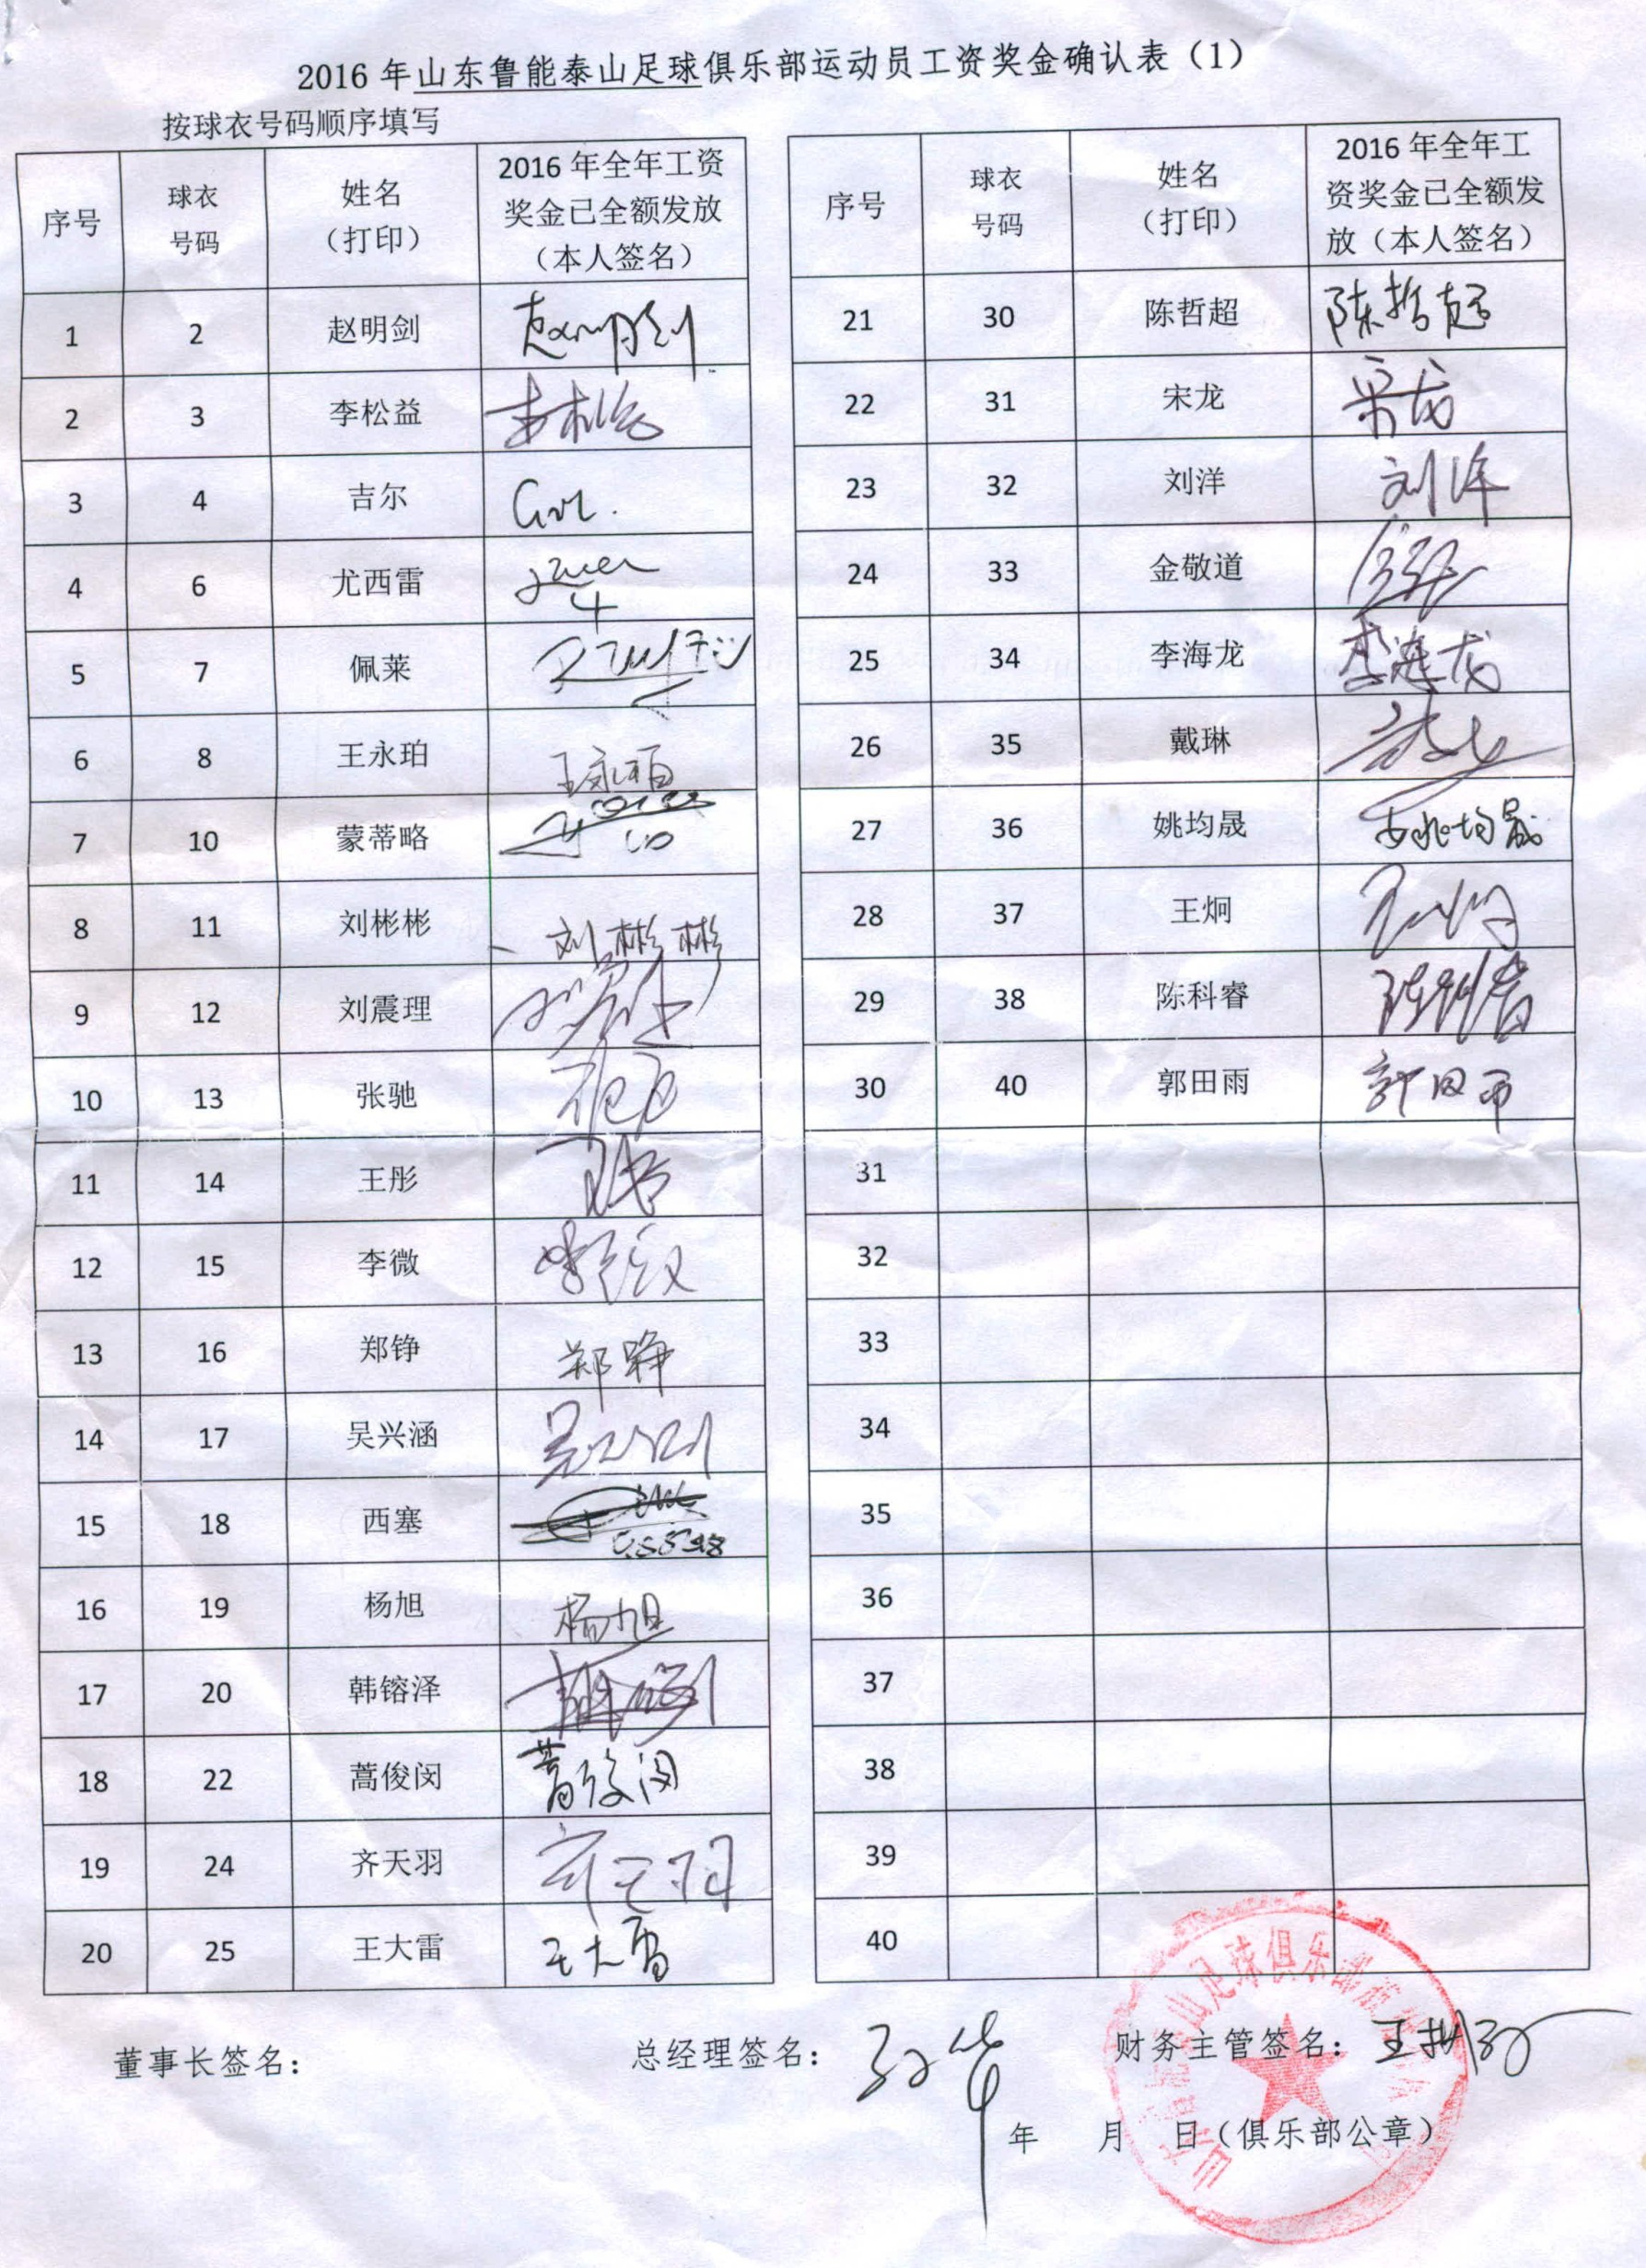 2016年山东鲁能泰山足球俱乐部运动员工资奖金确认表（1）
按球衣号码顺序填写
序号 球衣号码 姓名（打印） 2016年全年工资奖金已全额发放（本人签名）
1 2 赵明剑 赵明剑
2 3 李松益 李松益
3 4 吉尔
4 6 尤西雷
5 7 佩莱
6 8 王永珀 王永珀
7 10 蒙蒂略
8 11 刘彬彬 刘彬彬
9 12 刘震理
10 13 张驰
11 14 王彤
12 15 李微
13 16 郑铮 郑铮
14 17 吴兴涵
15 18 西塞
16 19 杨旭 杨旭
17 20 韩镕泽
18 22 蒿俊闵 蒿俊闵
19 24 齐天羽 齐天羽
20 25 王大雷 王大雷
序号 球衣号码 姓名（打印） 2016年全年工资奖金已全额发放（本人签名）
21 30 陈哲超 陈哲超
22 31 宋龙 宋龙
23 32 刘洋 刘洋
24 33 金敬道
25 34 李海龙 李海龙
26 35 戴琳
27 36 姚均晟 姚均晟
28 37 王炯
29 38 陈科睿 陈科睿
30 40 郭田雨 郭田雨
31
32
33
34
35
36
37
38
39
40
董事长签名： 总经理签名： 财务主管签名：
年 月 日（俱乐部公章）